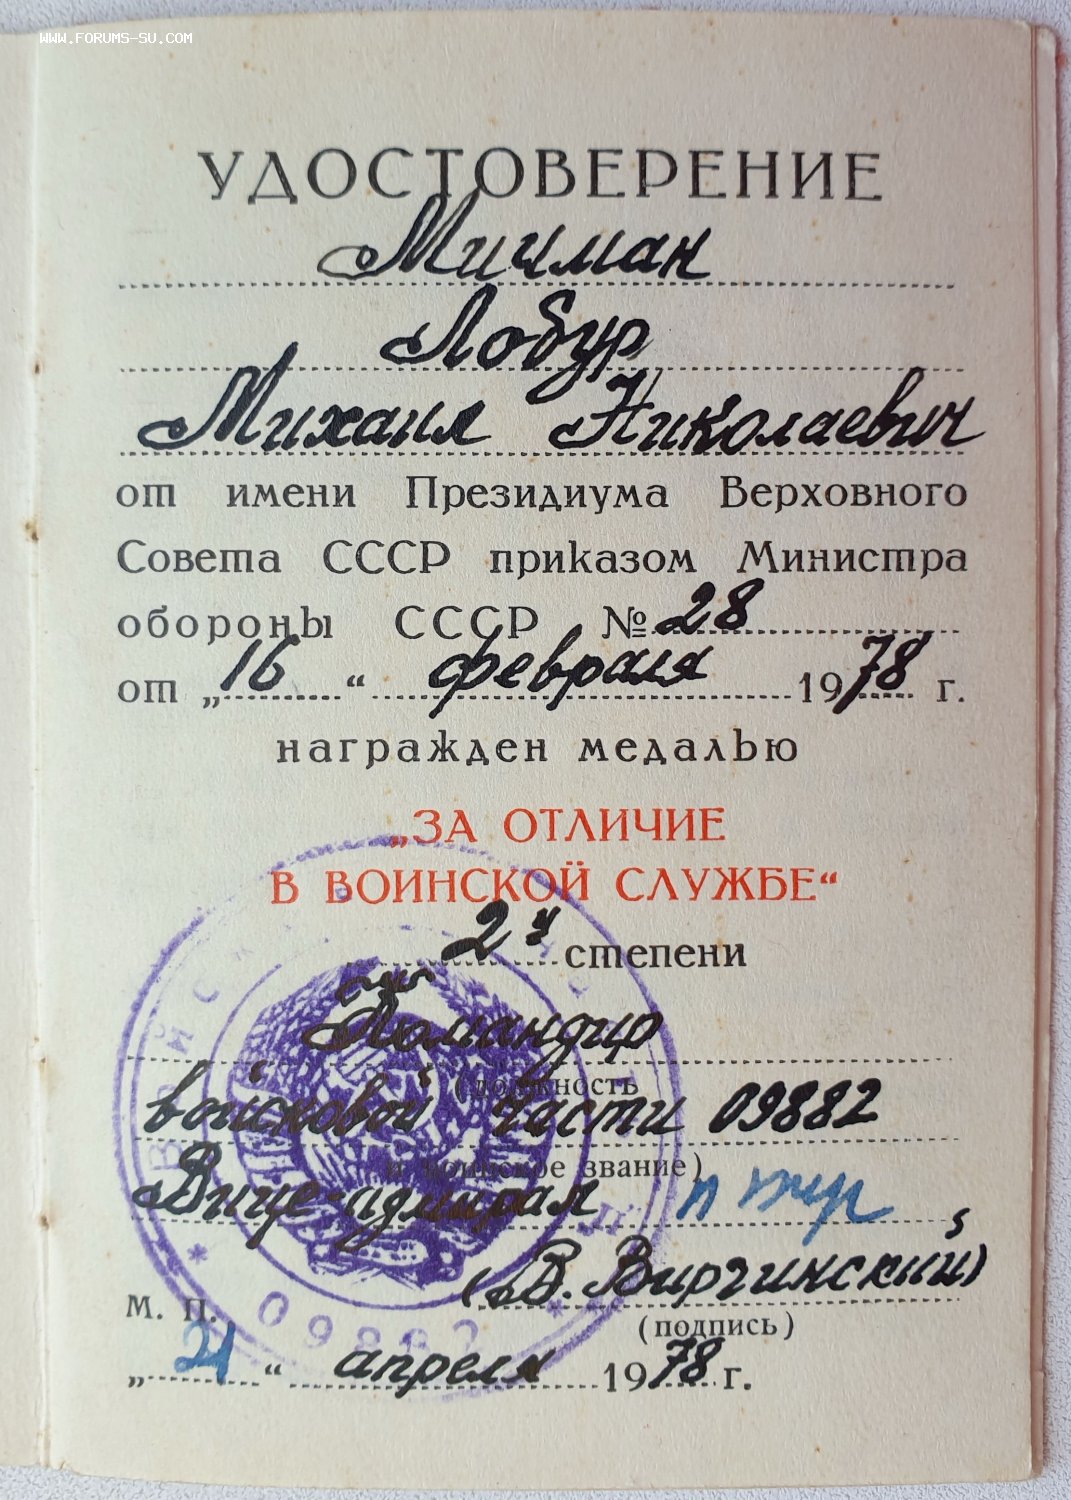 WWW.FORUMS-SU.COM
УДОСТОВЕРЕНИЕ
Мичман
Лобур
Михаил Николаевич
от имени Президиума Верховного
Совета СССР приказом Министра
обороны СССР № 28
от „16“ февраля 1978 г.
награжден медалью
„ЗА ОТЛИЧИЕ
В ВОИНСКОЙ СЛУЖБЕ“
2й степени
Командир
(должность
войсковой части 09882
и воинское звание)
Вице-адмирал
(В. Виргинский)
М. П.
(подпись)
„21“ апреля 1978 г.
09882